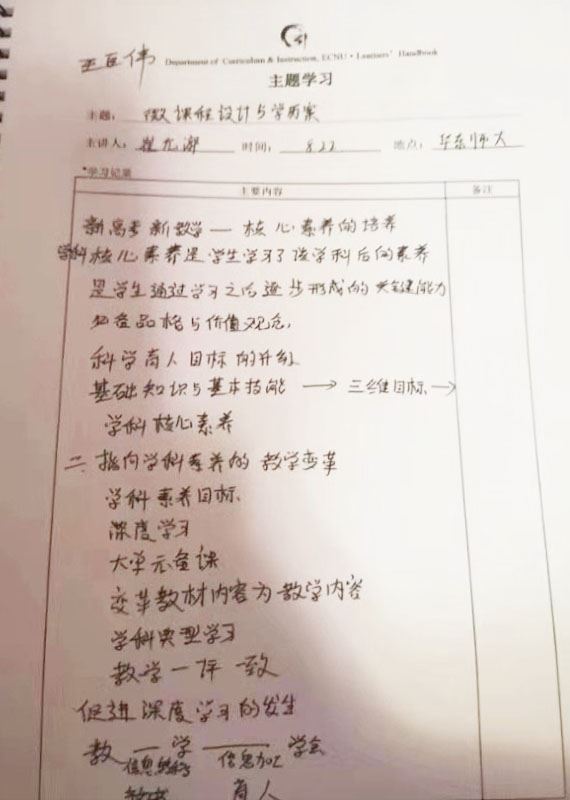 王巨伟
Department of Curriculum & Instruction, ECNU · Learners' Handbook
主题学习
主题： 微课程设计与学历案
主讲人： 崔允漷 时间： 8.22 地点： 华东师大
*学习记录
主要内容 备注
新高考新教学— 核心素养的培养
学科核心素养是学生学习了该学科后的素养
是学生通过学习之后逐步形成的关键能力
必备品格与价值观念,
科学育人目标的升级
基础知识与基本技能 → 三维目标 →
学科核心素养
二、指向学科素养的教学变革
学科素养目标
深度学习
大单元备课
变革教材内容为教学内容
学科典型学习
教学一评一致
促进深度学习的发生
教 — 学 — 学会
信息转移 信息加工
教书 育人